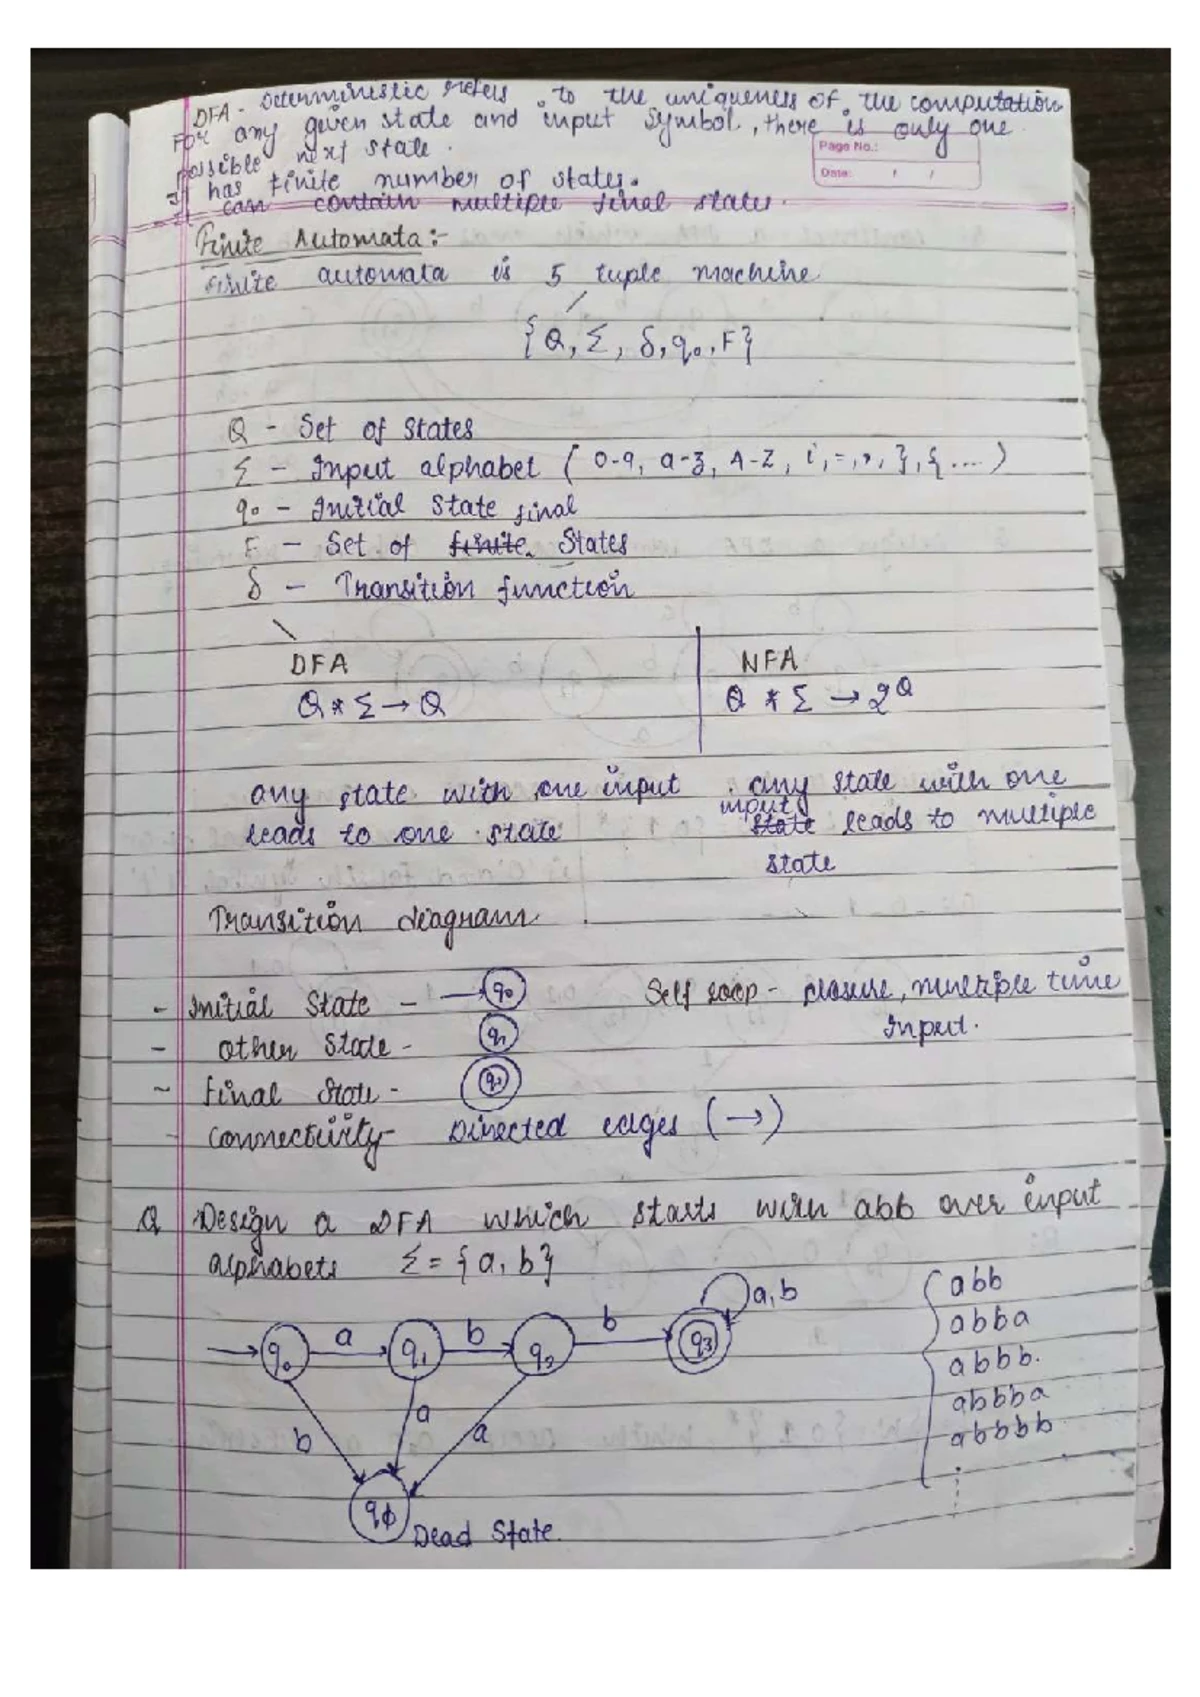 DFA - Deterministic refers to the uniqueness of the computation
For any given state and input symbol, there is only one
possible next state.
It has finite number of states.
can contain multiple final states.
Page No.:
Date: / /
Finite Automata :-
Finite automata is 5 tuple machine
{Q, Σ, δ, q₀, F}
Q - Set of States
Σ - Input alphabet ( 0-9, a-z, A-Z, i, =, *, }, { .... )
q₀ - Initial State
F - Set of ~~finite~~ final States
δ - Transition function
DFA NFA
Q * Σ → Q Q * Σ → 2^Q
any state with one input
leads to one state
any state with one
~~state~~ input leads to multiple
state
Transition diagram
- Initial State - → q₀ Self loop - closure, multiple time
Input.
- other State - q₁
- final State -
- Connectivity - Directed edges (→)
Q Design a DFA which starts with abb over input
alphabets Σ = {a, b}
a,b
→ q₀ a q₁ b q₂ b q₃
b a a
qϕ Dead State.
abb
abba
abbb.
abbba
abbbb